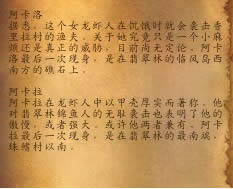 阿卡洛
据悉，这个女龙虾人在饥饿时就会袭击香
里拉村的渔夫。关于她究竟只是一个小麻
烦还是真正的威胁，目前尚无定论。阿卡
洛最后一次现身，是在翡翠林的临风岛西
南方的礁石上。
阿卡拉
阿卡拉在龙虾人中以甲壳厚实而著称，他
对翡翠林锦鱼人的无耻袭击也表明了他的
傲慢，或者强大。或许他两者兼有。阿卡
拉最后一次现身，是在翡翠林的最南端，
珠鳍村以南。